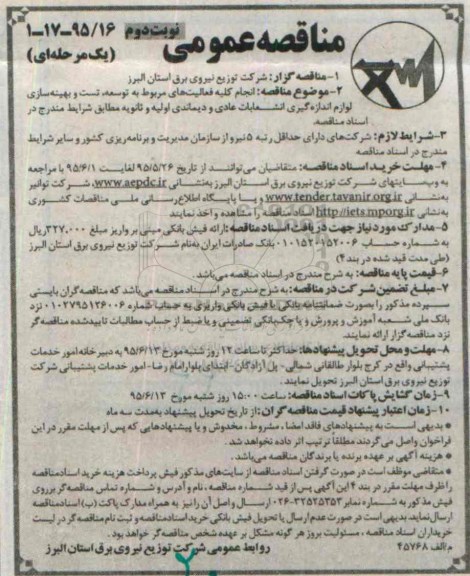 نوبت دوم ۹۵/۱۶-۱۷-۱
مناقصه عمومی
(یک مرحله‌ای)
۱-مناقصه گزار: شرکت توزیع نیروی برق استان البرز
۲-موضوع مناقصه: انجام کلیه فعالیت‌های مربوط به توسعه، تست و بهینه‌سازی
لوازم اندازه‌گیری انشعابات عادی و دیماندی اولیه و ثانویه مطابق شرایط مندرج در
اسناد مناقصه.
۳-شرایط لازم: شرکت‌های دارای حداقل رتبه ۵ نیرو از سازمان مدیریت و برنامه‌ریزی کشور و سایر شرایط
مندرج در اسناد مناقصه
۴-مهلت خرید اسناد مناقصه: متقاضیان می‌توانند از تاریخ ۹۵/۵/۲۶ لغایت ۹۵/۶/۱ با مراجعه
به وب‌سایتهای شرکت توزیع نیروی برق استان البرز به‌نشانی www.aepdc.ir، شرکت توانیر
به‌نشانی www.tender.tavanir.org.ir و یا پایگاه اطلاع‌رسانی ملی مناقصات کشوری
به‌نشانی http://iets.mporg.ir اسناد مناقصه را مشاهده و اخذ نمایند
۵-مدارک مورد نیاز جهت دریافت اسناد مناقصه: ارائه فیش بانکی مبنی بر واریز مبلغ ۳۲۷,۰۰۰ ریال
به شماره حساب ۰۱۰۱۵۲۰۱۵۲۰۰۶ بانک صادرات ایران به‌نام شرکت توزیع نیروی برق استان البرز
(طی مدت قید شده در بند ۴)
۶-قیمت پایه مناقصه: به شرح مندرج در اسناد مناقصه می‌باشد
۷-مبلغ تضمین شرکت در مناقصه: به شرح مندرج در اسناد مناقصه می‌باشد که مناقصه‌گران بایستی
سپرده مذکور را بصورت ضمانتنامه بانکی یا فیش بانکی واریزی به حساب شماره ۰۱۰۲۷۹۵۱۳۶۰۰۶ نزد
بانک ملی شعبه آموزش و پرورش و یا چک‌بانکی تضمینی و یا ضبط از حساب مطالبات تاییدشده مناقصه‌گر
نزد مناقصه‌گزار ارائه نمایند.
۸-مهلت و محل تحویل پیشنهادها: حداکثر تا ساعت ۱۲ روز شنبه مورخ ۹۵/۶/۱۳ به دبیرخانه امور خدمات
پشتیبانی واقع در کرج بلوار طالقانی شمالی- پل آزادگان-ابتدای بلوار امام رضا-امور خدمات پشتیبانی شرکت
توزیع نیروی برق استان البرز تحویل نمایند.
۹-زمان گشایش پاکات اسناد مناقصه: ساعت ۱۵:۰۰ روز شنبه مورخ ۹۵/۶/۱۳
۱۰-زمان اعتبار پیشنهاد قیمت مناقصه گران: از تاریخ تحویل پیشنهاد به‌مدت سه ماه
● بدیهی است به پیشنهادهای فاقد امضا، مشروط، مخدوش و یا پیشنهادهایی که پس از مهلت مقرر در این
فراخوان واصل می‌گردند مطلقا ترتیب اثر داده نخواهد شد.
● هزینه آگهی بر عهده برنده یا برندگان مناقصه می‌باشد.
● متقاضی موظف است در صورت گرفتن اسناد مناقصه از سایت‌های مذکور فیش پرداخت هزینه خرید اسناد مناقصه
را ظرف مهلت مقرر در بند ۴ این آگهی پس از قید شماره مناقصه، نام و آدرس و شماره تماس مناقصه‌گر بر روی
فیش مذکور به شماره نمابر ۳۲۵۲۵۳۵۳-۰۲۶ ارسال و اصل آن را نیز به همراه مدارک پاکت (ب) اسناد مناقصه
ارسال نماید، بدیهی است در صورت عدم ارسال یا تحویل فیش بانکی خرید اسناد مناقصه و ثبت نام مناقصه‌گر در لیست
خریداران اسناد مناقصه، مسئولیت بروز هر گونه مشکل بر عهده شخص مناقصه‌گر خواهد بود.
م/الف ۴۵۷۶۸
روابط عمومی شرکت توزیع نیروی برق استان البرز